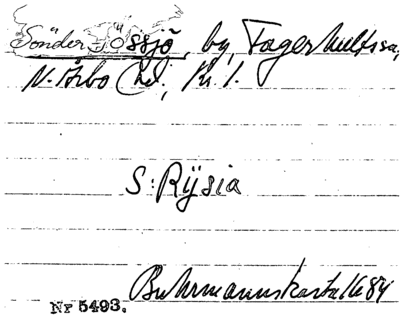 Sönder-Össjö, by, Fagerhults sn,
N. Åsbo hd, Kr. l.
S: Rÿsia
Buhrmanns karta 1684
Nr 5493.